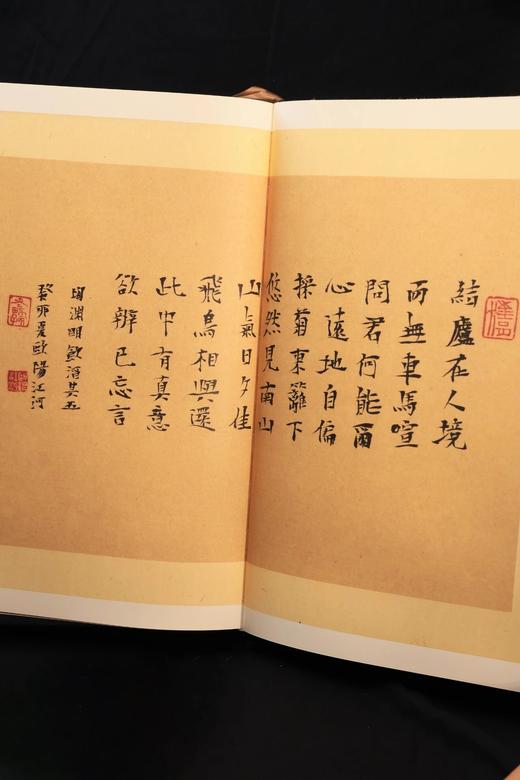 結廬在人境
而無車馬喧
問君何能爾
心遠地自偏
採菊東籬下
悠然見南山
山氣日夕佳
飛鳥相與還
此中有真意
欲辨已忘言
陶淵明飲酒其五
癸卯夏歐陽江河